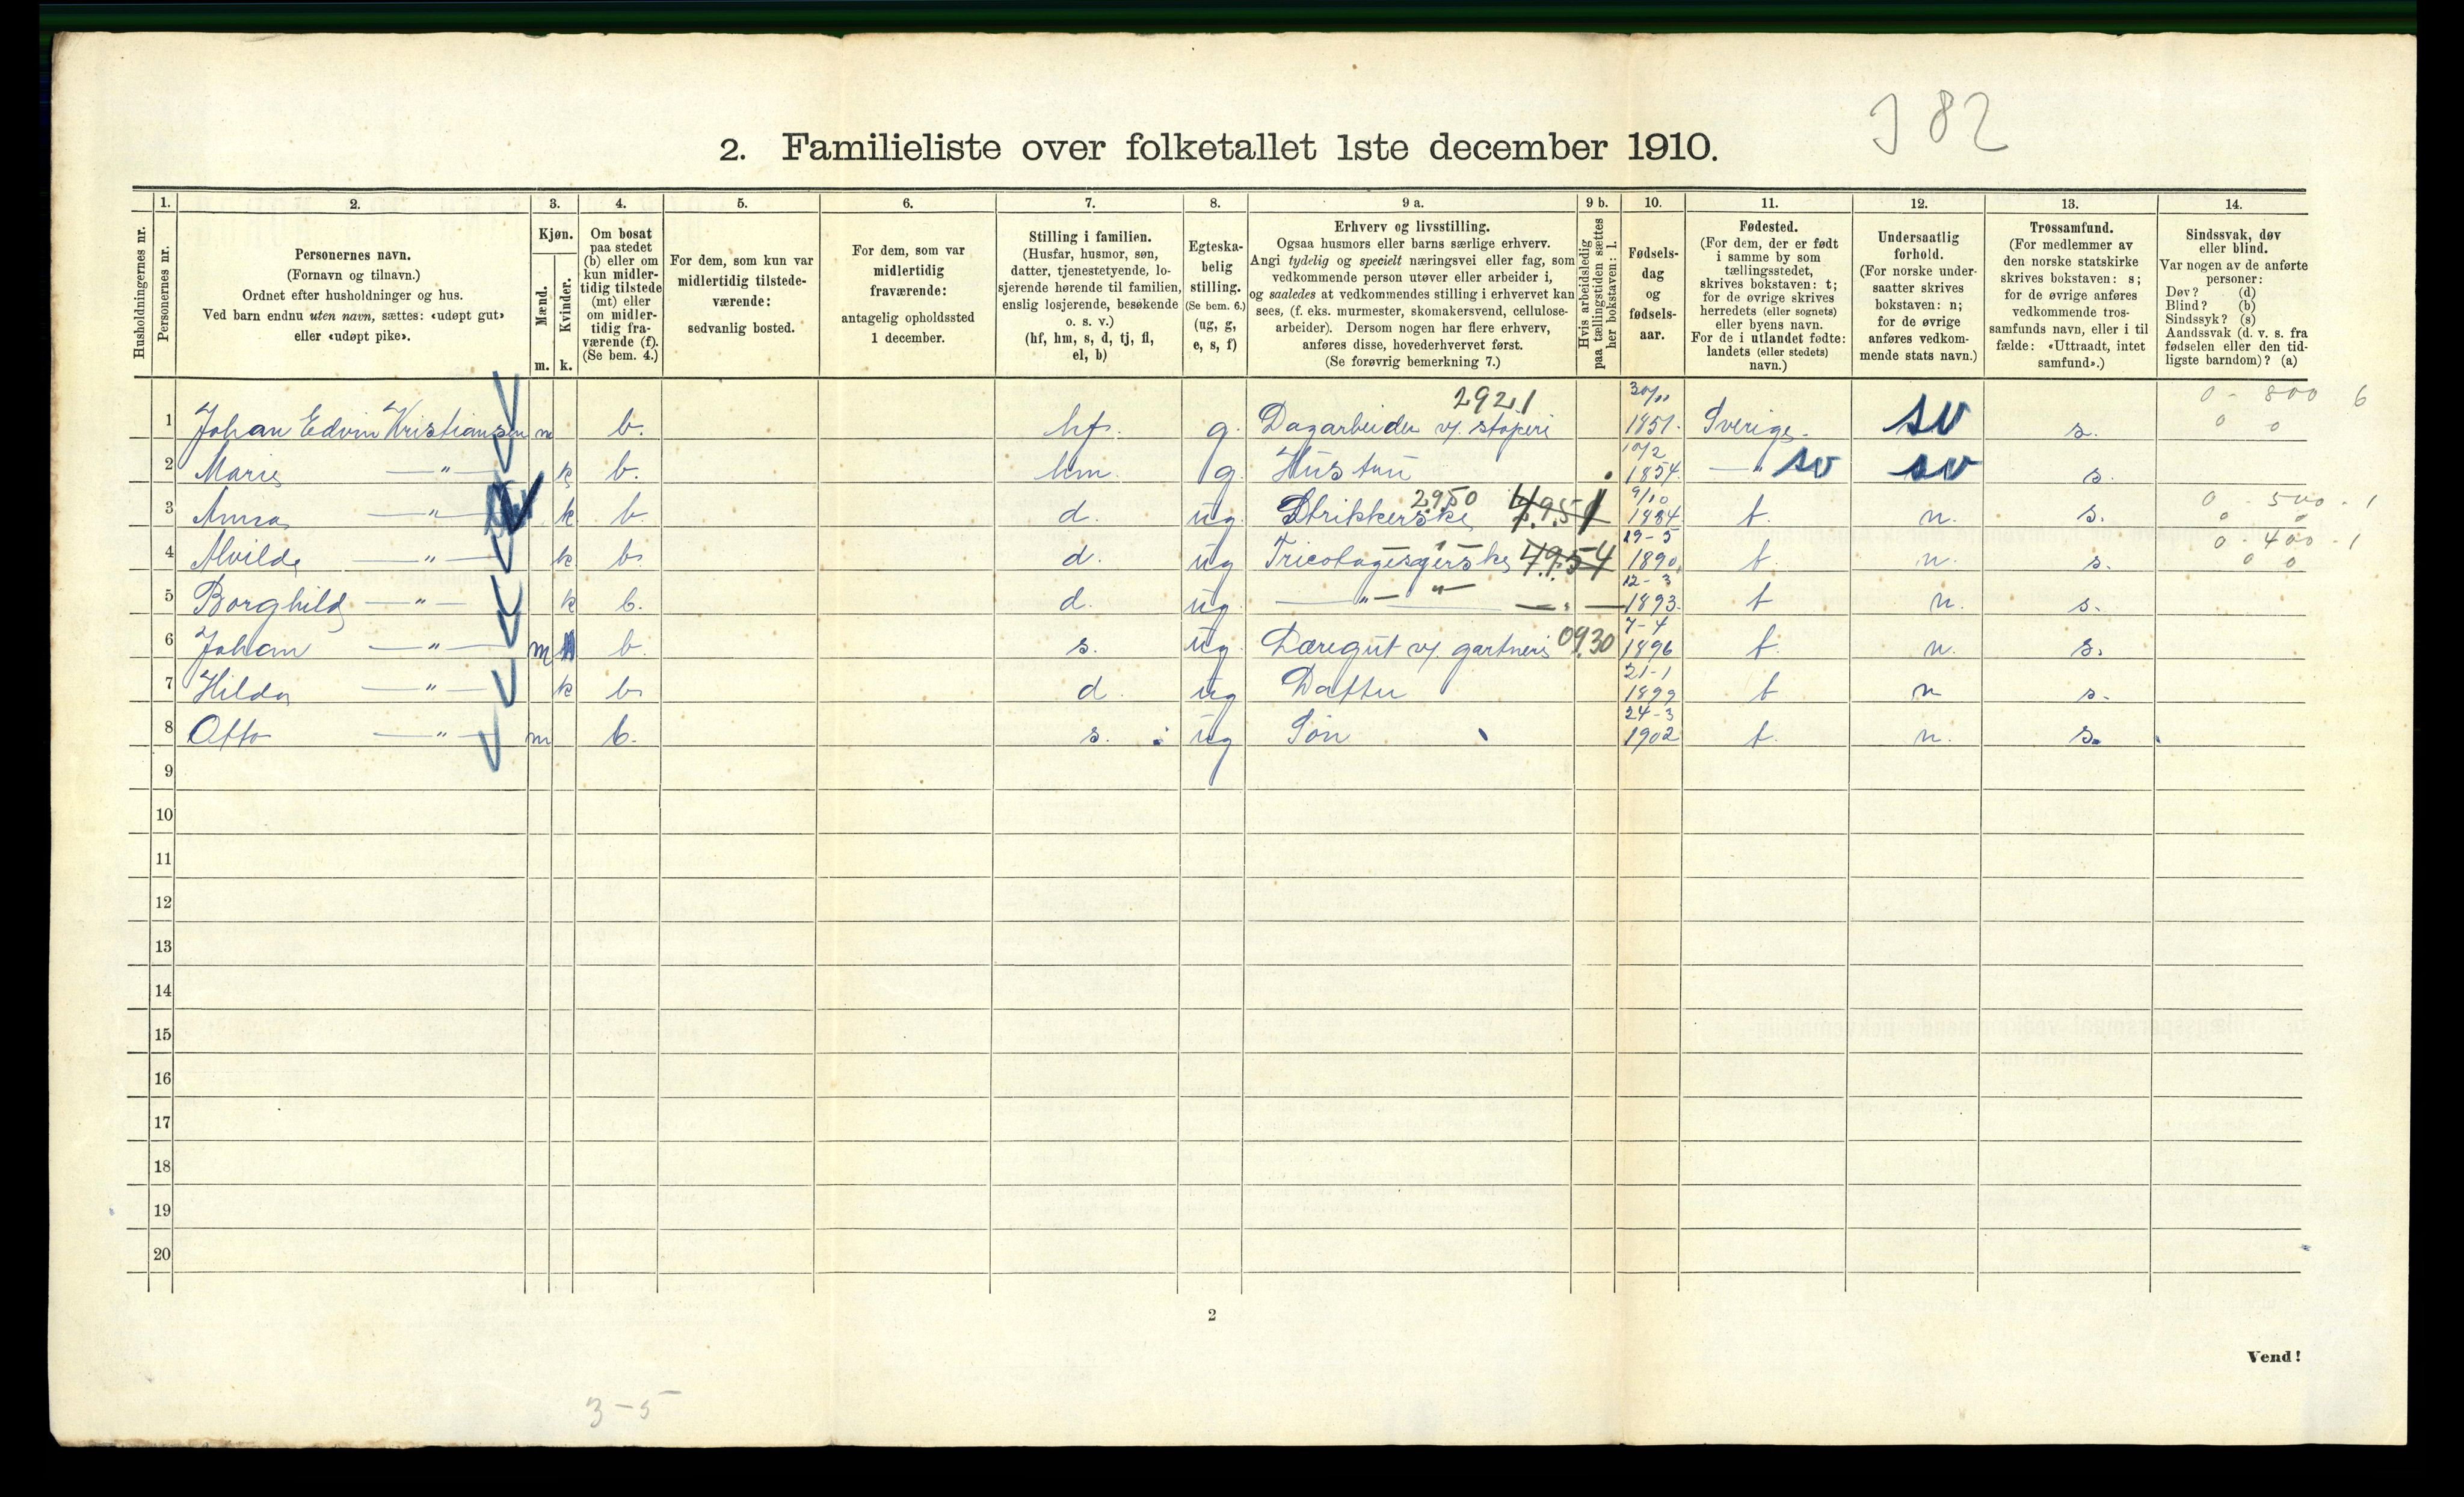 J 82
2. Familieliste over folketallet 1ste december 1910.
Husholdningernes nr.
1. Personernes nr.
2. Personernes navn.
(Fornavn og tilnavn.)
Ordnet efter husholdninger og hus.
Ved barn endnu uten navn, sættes: «udøpt gut»
eller «udøpt pike».
3. Kjøn.
Mænd. m.
Kvinder. k.
4. Om bosat
paa stedet
(b) eller om
kun midler-
tidig tilstede
(mt) eller
om midler-
tidig fra-
værende (f).
(Se bem. 4.)
5. For dem, som kun var
midlertidig tilstede-
værende:
sedvanlig bosted.
6. For dem, som var
midlertidig
fraværende:
antagelig opholdssted
1 december.
7. Stilling i familien.
(Husfar, husmor, søn,
datter, tjenestetyende, lo-
sjerende hørende til familien,
enslig losjerende, besøkende
o. s. v.)
(hf, hm, s, d, tj, fl,
el, b)
8. Egteska-
belig
stilling.
(Se bem. 6.)
(ug, g,
e, s, f)
9 a. Erhverv og livsstilling.
Ogsaa husmors eller barns særlige erhverv.
Angi tydelig og specielt næringsvei eller fag, som
vedkommende person utøver eller arbeider i,
og saaledes at vedkommendes stilling i erhvervet kan
sees, (f. eks. murmester, skomakersvend, cellulose-
arbeider). Dersom nogen har flere erhverv,
anføres disse, hovederhvervet først.
(Se forøvrig bemerkning 7.)
9 b. Hvis arbeidsledig
paa tællingstiden sættes
her bokstaven: l.
10. Fødsels-
dag
og
fødsels-
aar.
11. Fødested.
(For dem, der er født
i samme by som
tællingsstedet,
skrives bokstaven: t;
for de øvrige skrives
herredets (eller sognets)
eller byens navn.
For de i utlandet fødte:
landets (eller stedets)
navn.)
12. Undersaatlig
forhold.
(For norske under-
saatter skrives
bokstaven: n;
for de øvrige
anføres vedkom-
mende stats navn.)
13. Trossamfund.
(For medlemmer av
den norske statskirke
skrives bokstaven: s;
for de øvrige anføres
vedkommende tros-
samfunds navn, eller i til
fælde: «Uttraadt, intet
samfund».)
14. Sindssvak, døv
eller blind.
Var nogen av de anførte
personer:
Døv? (d)
Blind? (b)
Sindssyk? (s)
Aandssvak (d. v. s. fra
fødselen eller den tid-
ligste barndom)? (a)
2921 30/11 0 - 800 6
1 Johan Edvin Kristiansen m b. hf. g. Dagarbeider v/ støperi 1851. Sverige. sv s. 0 0
10/2
2 Marie — " — k b. hm. g. Hustru 1854. — " sv sv s.
2950 4951 9/10 0 - 500 - 1
3 Anna — " — k b d. ug. Strikkerske 1884 t. n. s. 0 0
— " — 4954 19-5 0 - 400 - 1
4 Alvilde — " — k b. d. ug Tricotagesyerske 1890. t. n. s. 0 0
12-3
5 Borghild — " — k b. d. ug. — " — " — 1893. t n. s.
0930 7-4
6 Johan — " — m b. s. ug. Læregut v/ gartneri 1896 t. n. s.
21-1
7 Hilda — " — k b. d. ug Datter 1899 t n s.
24-3
8 Otto — " — m b. s. ug Søn 1902 t. n. s.
9
10
11
12
13
14
15
16
17
18
19
20
2
Vend!
3-5